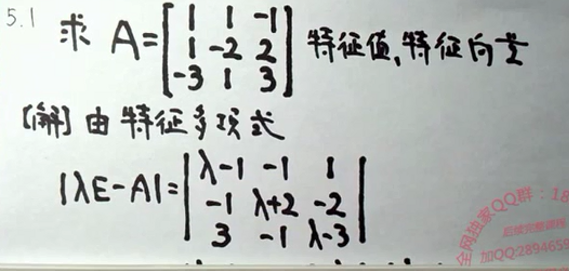 5.1 求 A=[1 1 -1; 1 -2 2; -3 1 3] 特征值,特征向量
[解] 由特征多项式
|λE-A|=|λ-1 -1 1; -1 λ+2 -2; 3 -1 λ-3|
全网独家QQ群:18
后续完整课程
加QQ:2894659